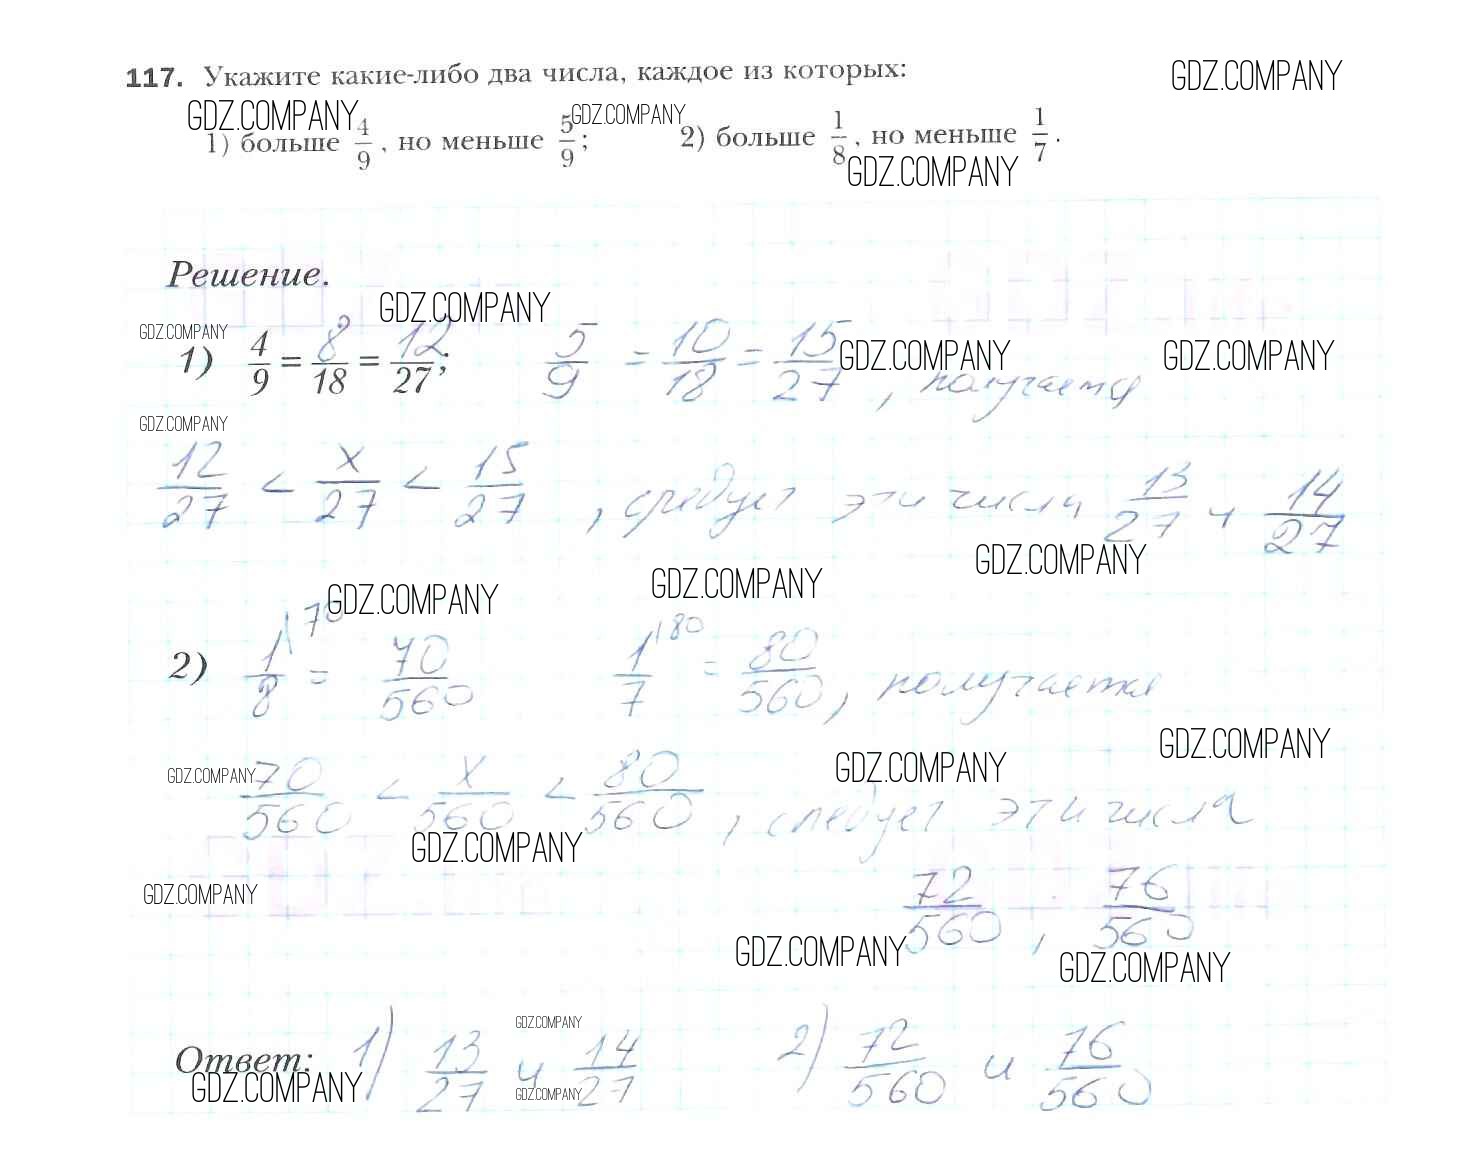 117. Укажите какие-либо два числа, каждое из которых:
GDZ.COMPANY
GDZ.COMPANY GDZ.COMPANY
1) больше 4/9, но меньше 5/9; 2) больше 1/8, но меньше 1/7.
GDZ.COMPANY
Решение.
GDZ.COMPANY
GDZ.COMPANY
1) 4/9 = 8/18 = 12/27; 5/9 = 10/18 = 15/27, получается
GDZ.COMPANY GDZ.COMPANY
GDZ.COMPANY
12/27 < x/27 < 15/27, следует эти числа 13/27 и 14/27
GDZ.COMPANY
GDZ.COMPANY GDZ.COMPANY
2) 1/8 \70 = 70/560 1/7 \80 = 80/560, получается
GDZ.COMPANY
GDZ.COMPANY GDZ.COMPANY
70/560 < x/560 < 80/560, следует эти числа
GDZ.COMPANY
GDZ.COMPANY
72/560, 76/560
GDZ.COMPANY GDZ.COMPANY
GDZ.COMPANY
Ответ: 1) 13/27 и 14/27 2) 72/560 и 76/560
GDZ.COMPANY GDZ.COMPANY